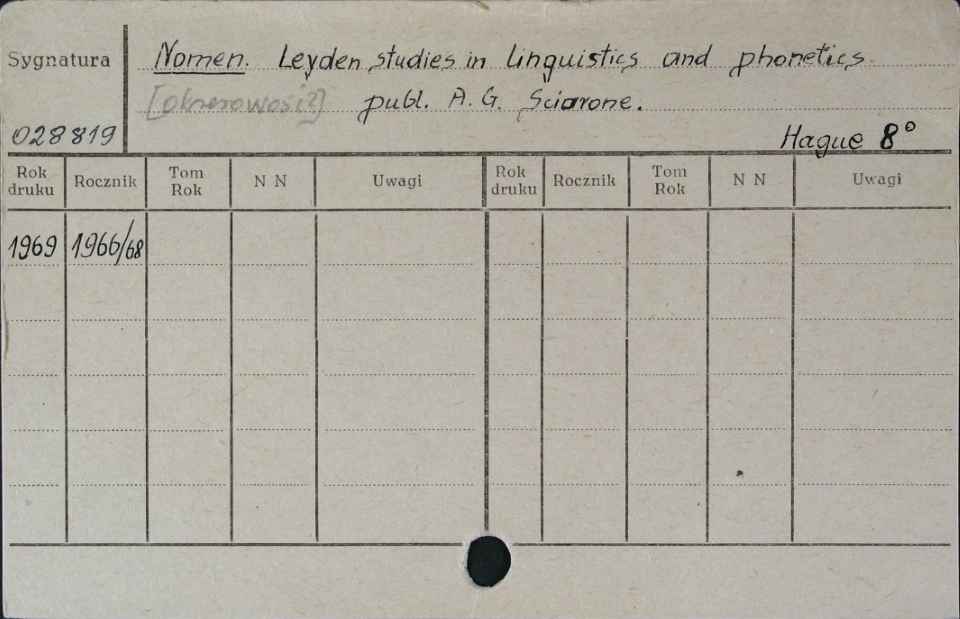 Sygnatura
Nomen. Leyden studies in linguistics and phonetics
publ. A. G. Sciarone.
028819
Hague 8°
Rok druku Rocznik Tom Rok N N Uwagi Rok druku Rocznik Tom Rok N N Uwagi
1969 1966/68